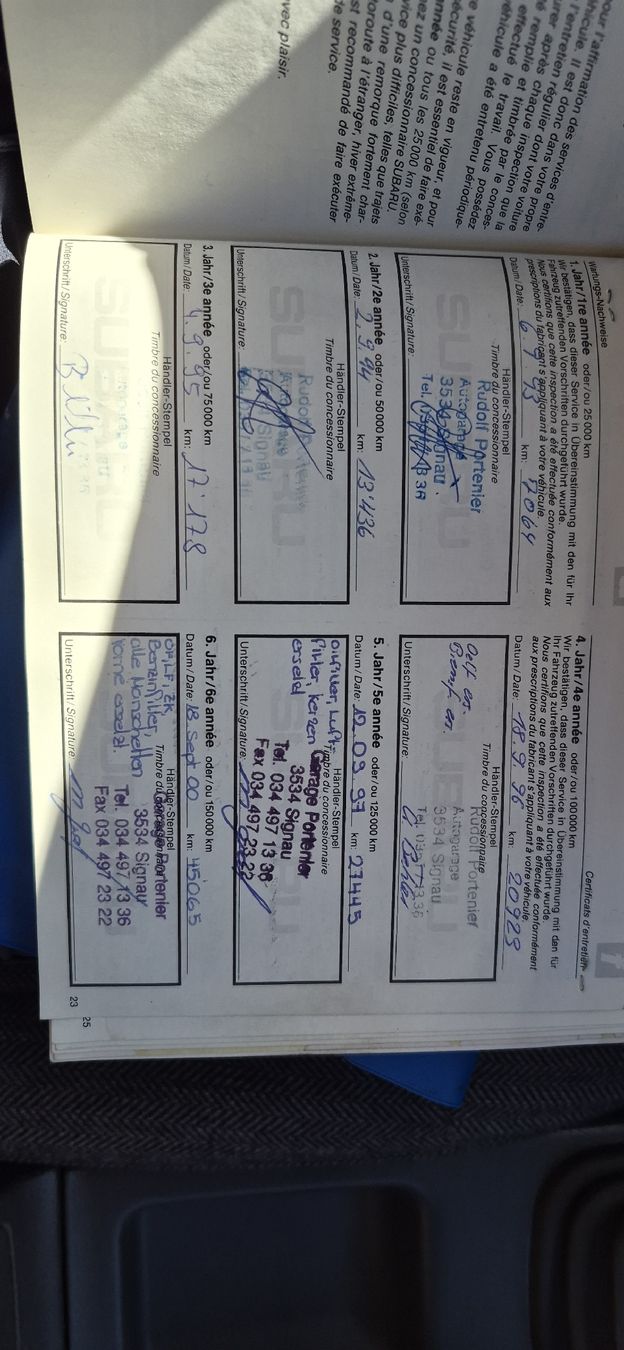 pour l'affirmation
hicule. Il est donc dans votre propre
l'entretien des services d'entre-
urer après régulier dont votre voiture
té remplie chaque inspection que la
effectué et timbrée par le conces-
éhicule le travail. Vous possédez
a été entretenu périodique-
e véhicule reste en vigueur, et pour
écurité, il est essentiel de faire exé-
année ou tous les 25 000 km (selon
nez un concessionnaire SUBARU.
vice plus difficiles, telles que trajets
d'une remorque fortement char-
oroute à l'étranger, hiver extrême-
st recommandé de faire exécuter
de service.
vec plaisir.
Wartungs-Nachweise
1. Jahr/1re année oder/ou 25 000 km
Wir bestätigen, dass dieser Service in Übereinstimmung mit den für Ihr
Fahrzeug zutreffenden Vorschriften durchgeführt wurde.
Nous certifions que cette inspection a été effectuée conformément aux
prescriptions du fabricant s'appliquant à votre véhicule.
Datum / Date: 6. 9 93 km: 7064
Händler-Stempel
Timbre du concessionnaire
Rudolf Portenier
Autogarage
3534 Signau
Tel.
Unterschrift / Signature:
2. Jahr/2e année oder/ou 50 000 km
Datum / Date: 2. 9. 94 km: 13'436
Händler-Stempel
Timbre du concessionnaire
Rudolf
Signau
Unterschrift / Signature:
3. Jahr/3e année oder/ou 75 000 km
Datum / Date: 4. 9. 95 km: 17'178
Händler-Stempel
Timbre du concessionnaire
Unterschrift / Signature:
Certificats d'entretien
4. Jahr/4e année oder/ou 100 000 km
Wir bestätigen, dass dieser Service in Übereinstimmung mit den für
Ihr Fahrzeug zutreffenden Vorschriften durchgeführt wurde.
Nous certifions que cette inspection a été effectuée conformément
aux prescriptions du fabricant s'appliquant à votre véhicule.
Datum / Date: 18. 9. 96 km: 20923
Händler-Stempel
Timbre du concessionnaire
Rudolf Portenier
Autogarage
3534 Signau
Unterschrift / Signature:
5. Jahr/5e année oder/ou 125 000 km
Datum / Date: 12. 09. 97 km: 27445
Händler-Stempel
Timbre du concessionnaire
filter kerzen
ersetzt
Garage Portenier
3534 Signau
Tel. 034 497 13 36
Fax 034 497 23 22
Unterschrift / Signature:
6. Jahr/6e année oder/ou 150 000 km
Datum / Date: 18 Sept 00 km: 45065
Händler-Stempel
Timbre du concessionnaire
Benzinfilter,
alle Manschetten
vorne ersetzt
Garage Portenier
3534 Signau
Tel. 034 497 13 36
Fax 034 497 23 22
Unterschrift / Signature:
23
25